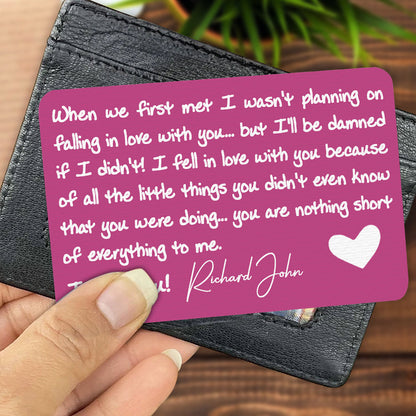 When we first met I wasn't planning on
falling in love with you... but I'll be damned
if I didn't! I fell in love with you because
of all the little things you didn't even know
that you were doing... you are nothing short
of everything to me.
I u! Richard John